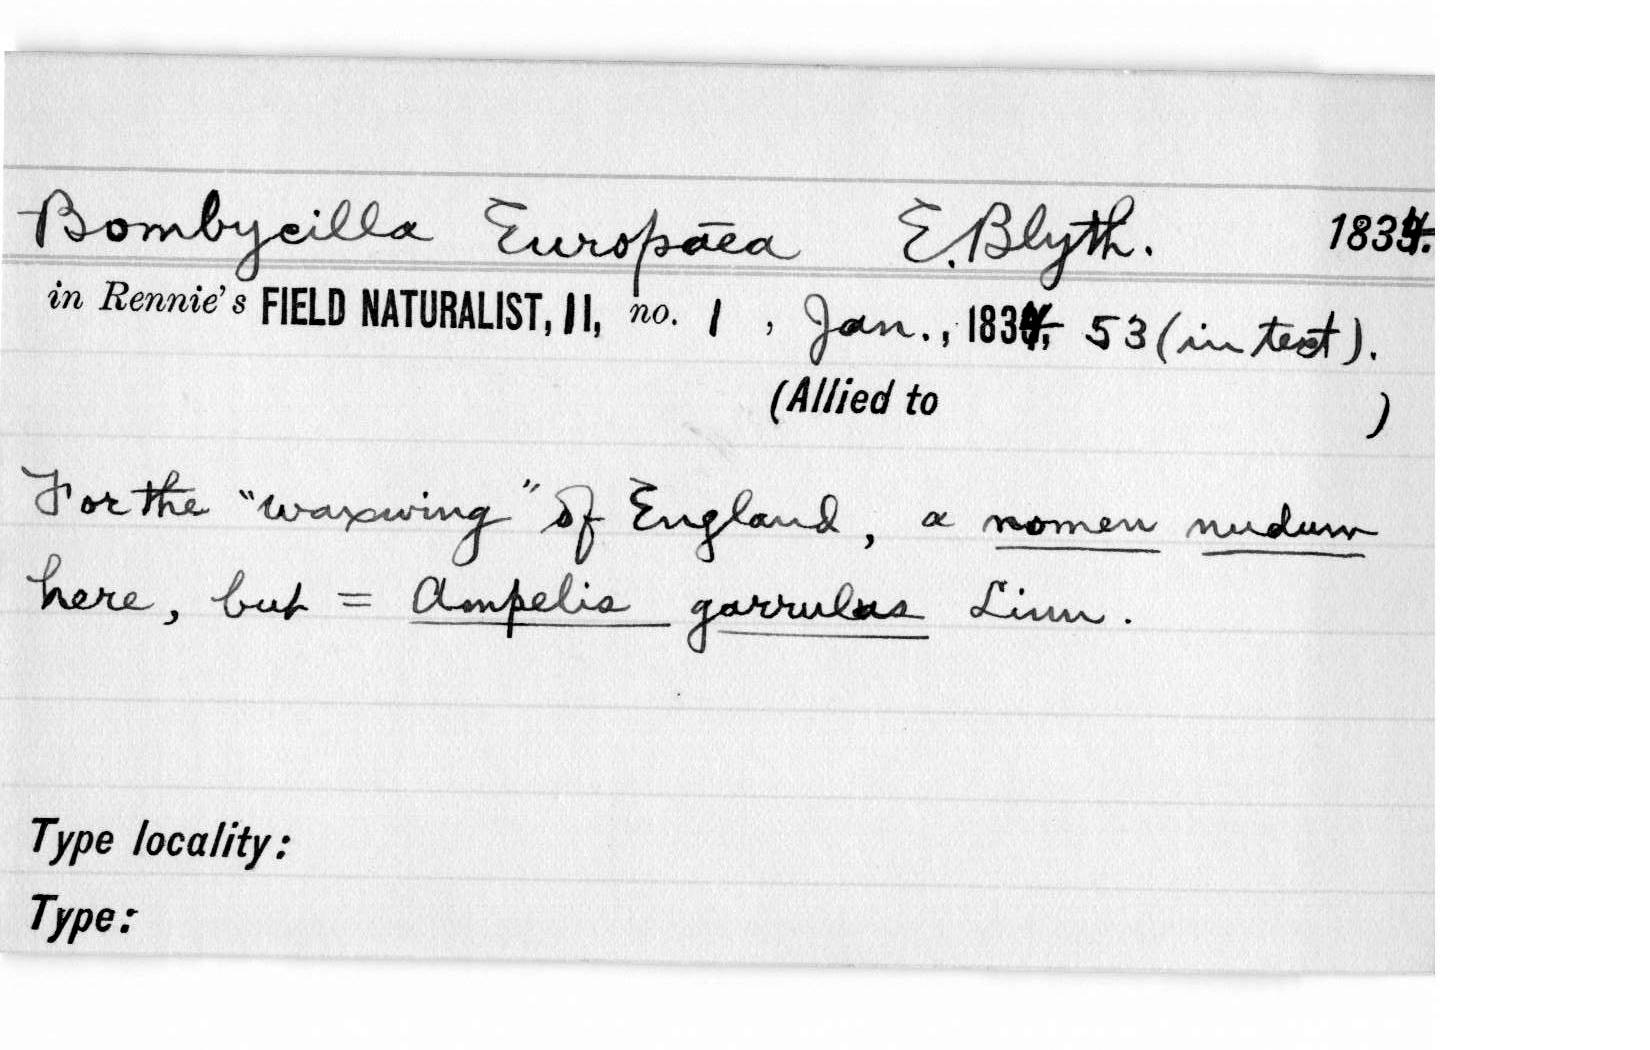 Bombycilla Europāea E. Blyth. 1834.
in Rennie's FIELD NATURALIST, II, no. 1, Jan., 1834, 53 (in text).
(Allied to )
For the "waxwing" of England, a nomen nudum
here, but = Ampelis garrulus Linn.
Type locality:
Type: